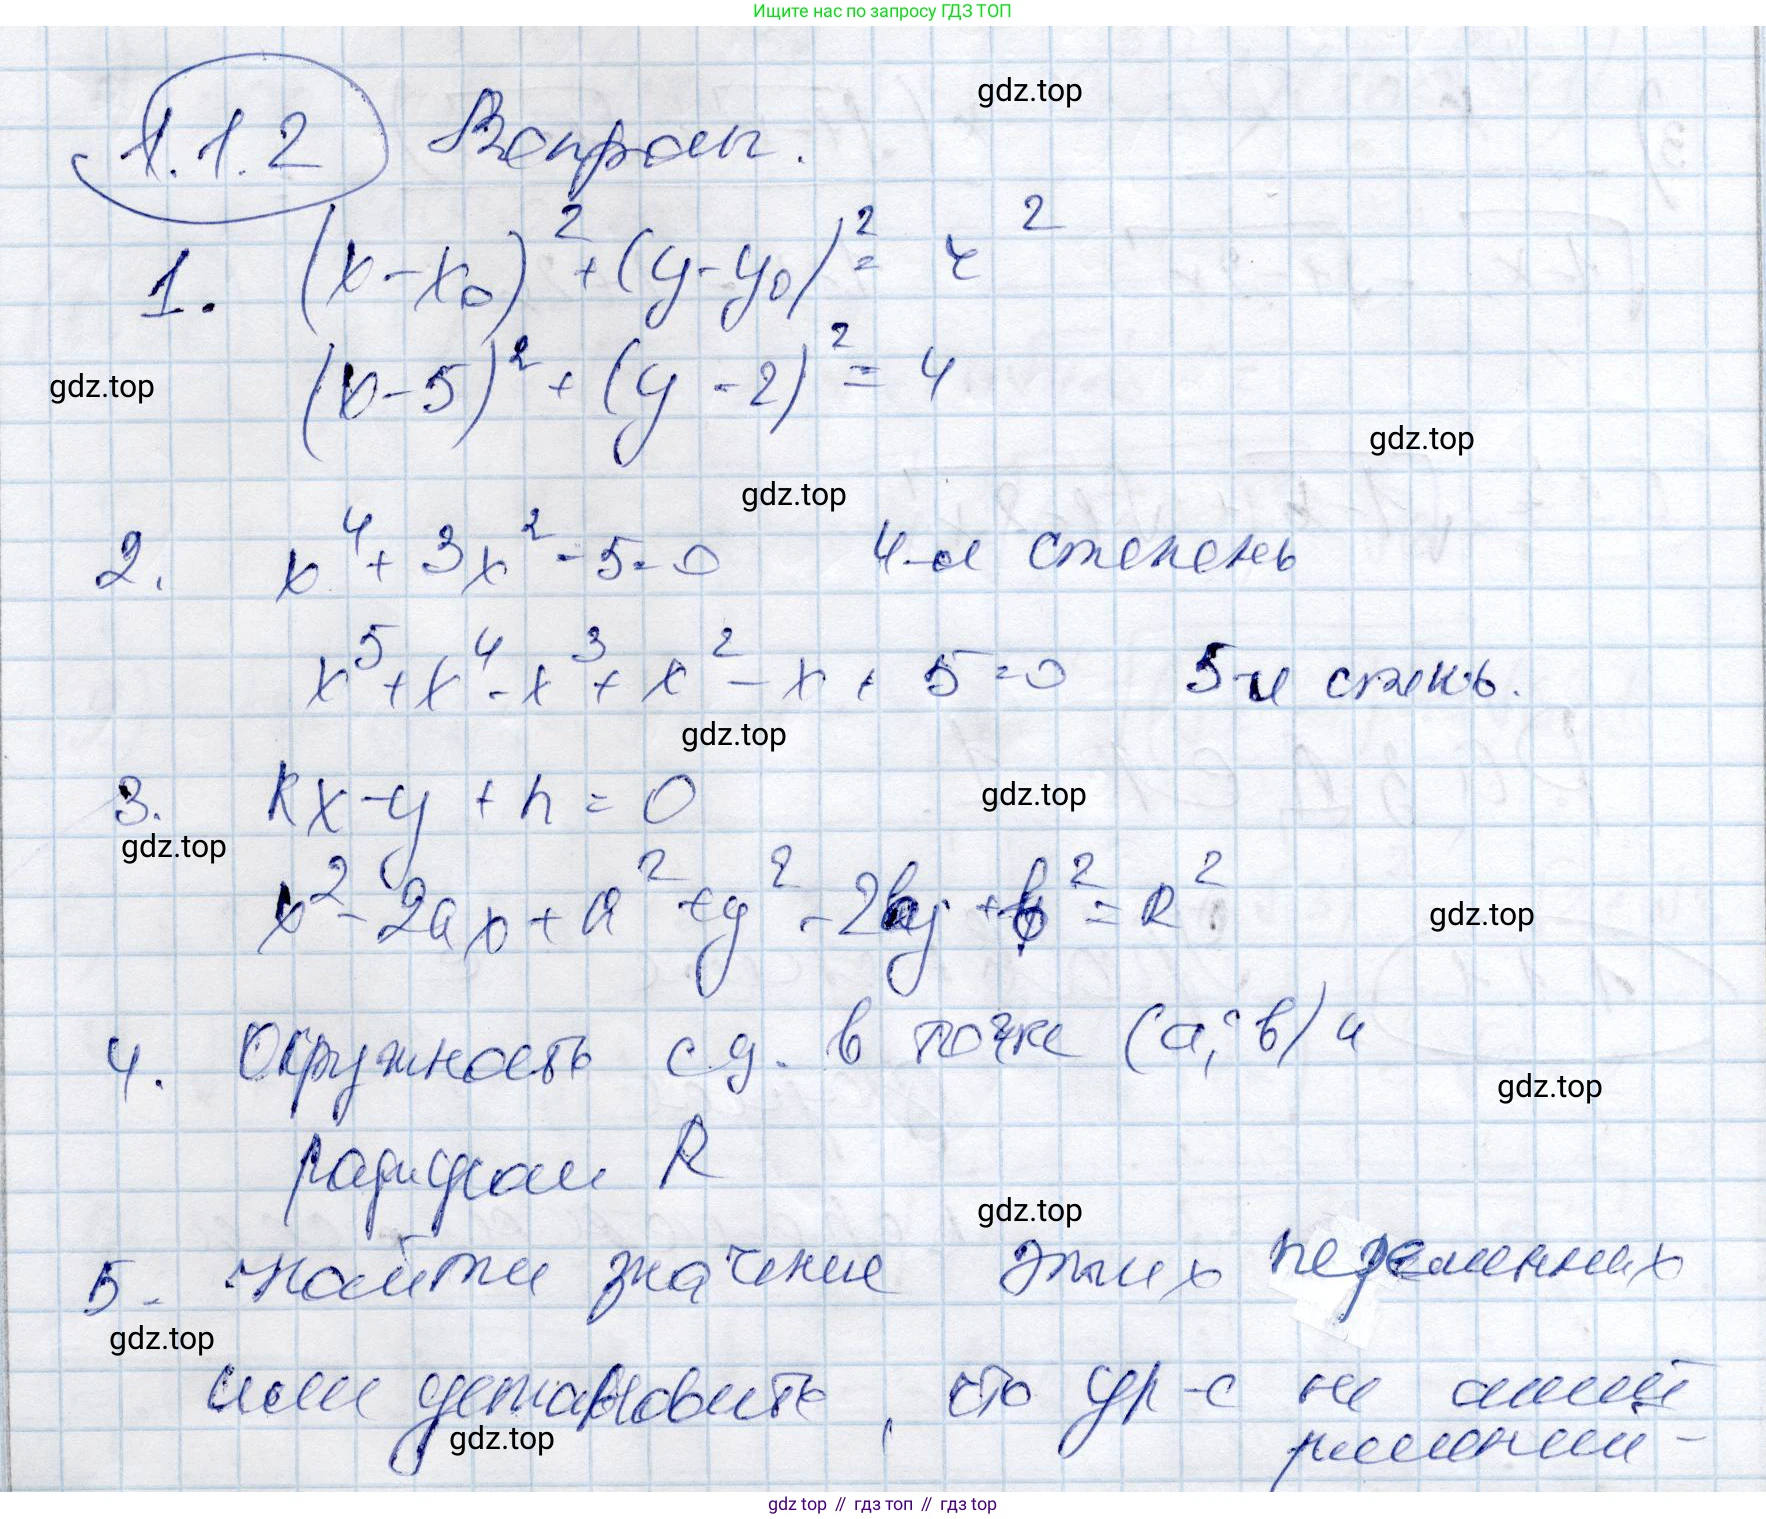 Ищите нас по запросу ГДЗ ТОП
gdz.top
1.1.2 Вопросы.
1. (x-x₀)²+(y-y₀)²= r²
(x-5)²+(y-2)²= 4
gdz.top
gdz.top
gdz.top
2. x⁴+3x²-5=0 4-я степень
x⁵+x⁴-x³+x²-x+5=0 5-я степень.
gdz.top
3. kx-y+h=0
gdz.top
gdz.top
x²-2ax+a²+y²-2by+b²=R²
gdz.top
4. Окружность с ц. в точке (a; b) и
gdz.top
радиусом R
gdz.top
5. Найти значение этих переменных
gdz.top
или установить, что ур-е не имеет
gdz.top
решений
gdz top // гдз топ // gdz top